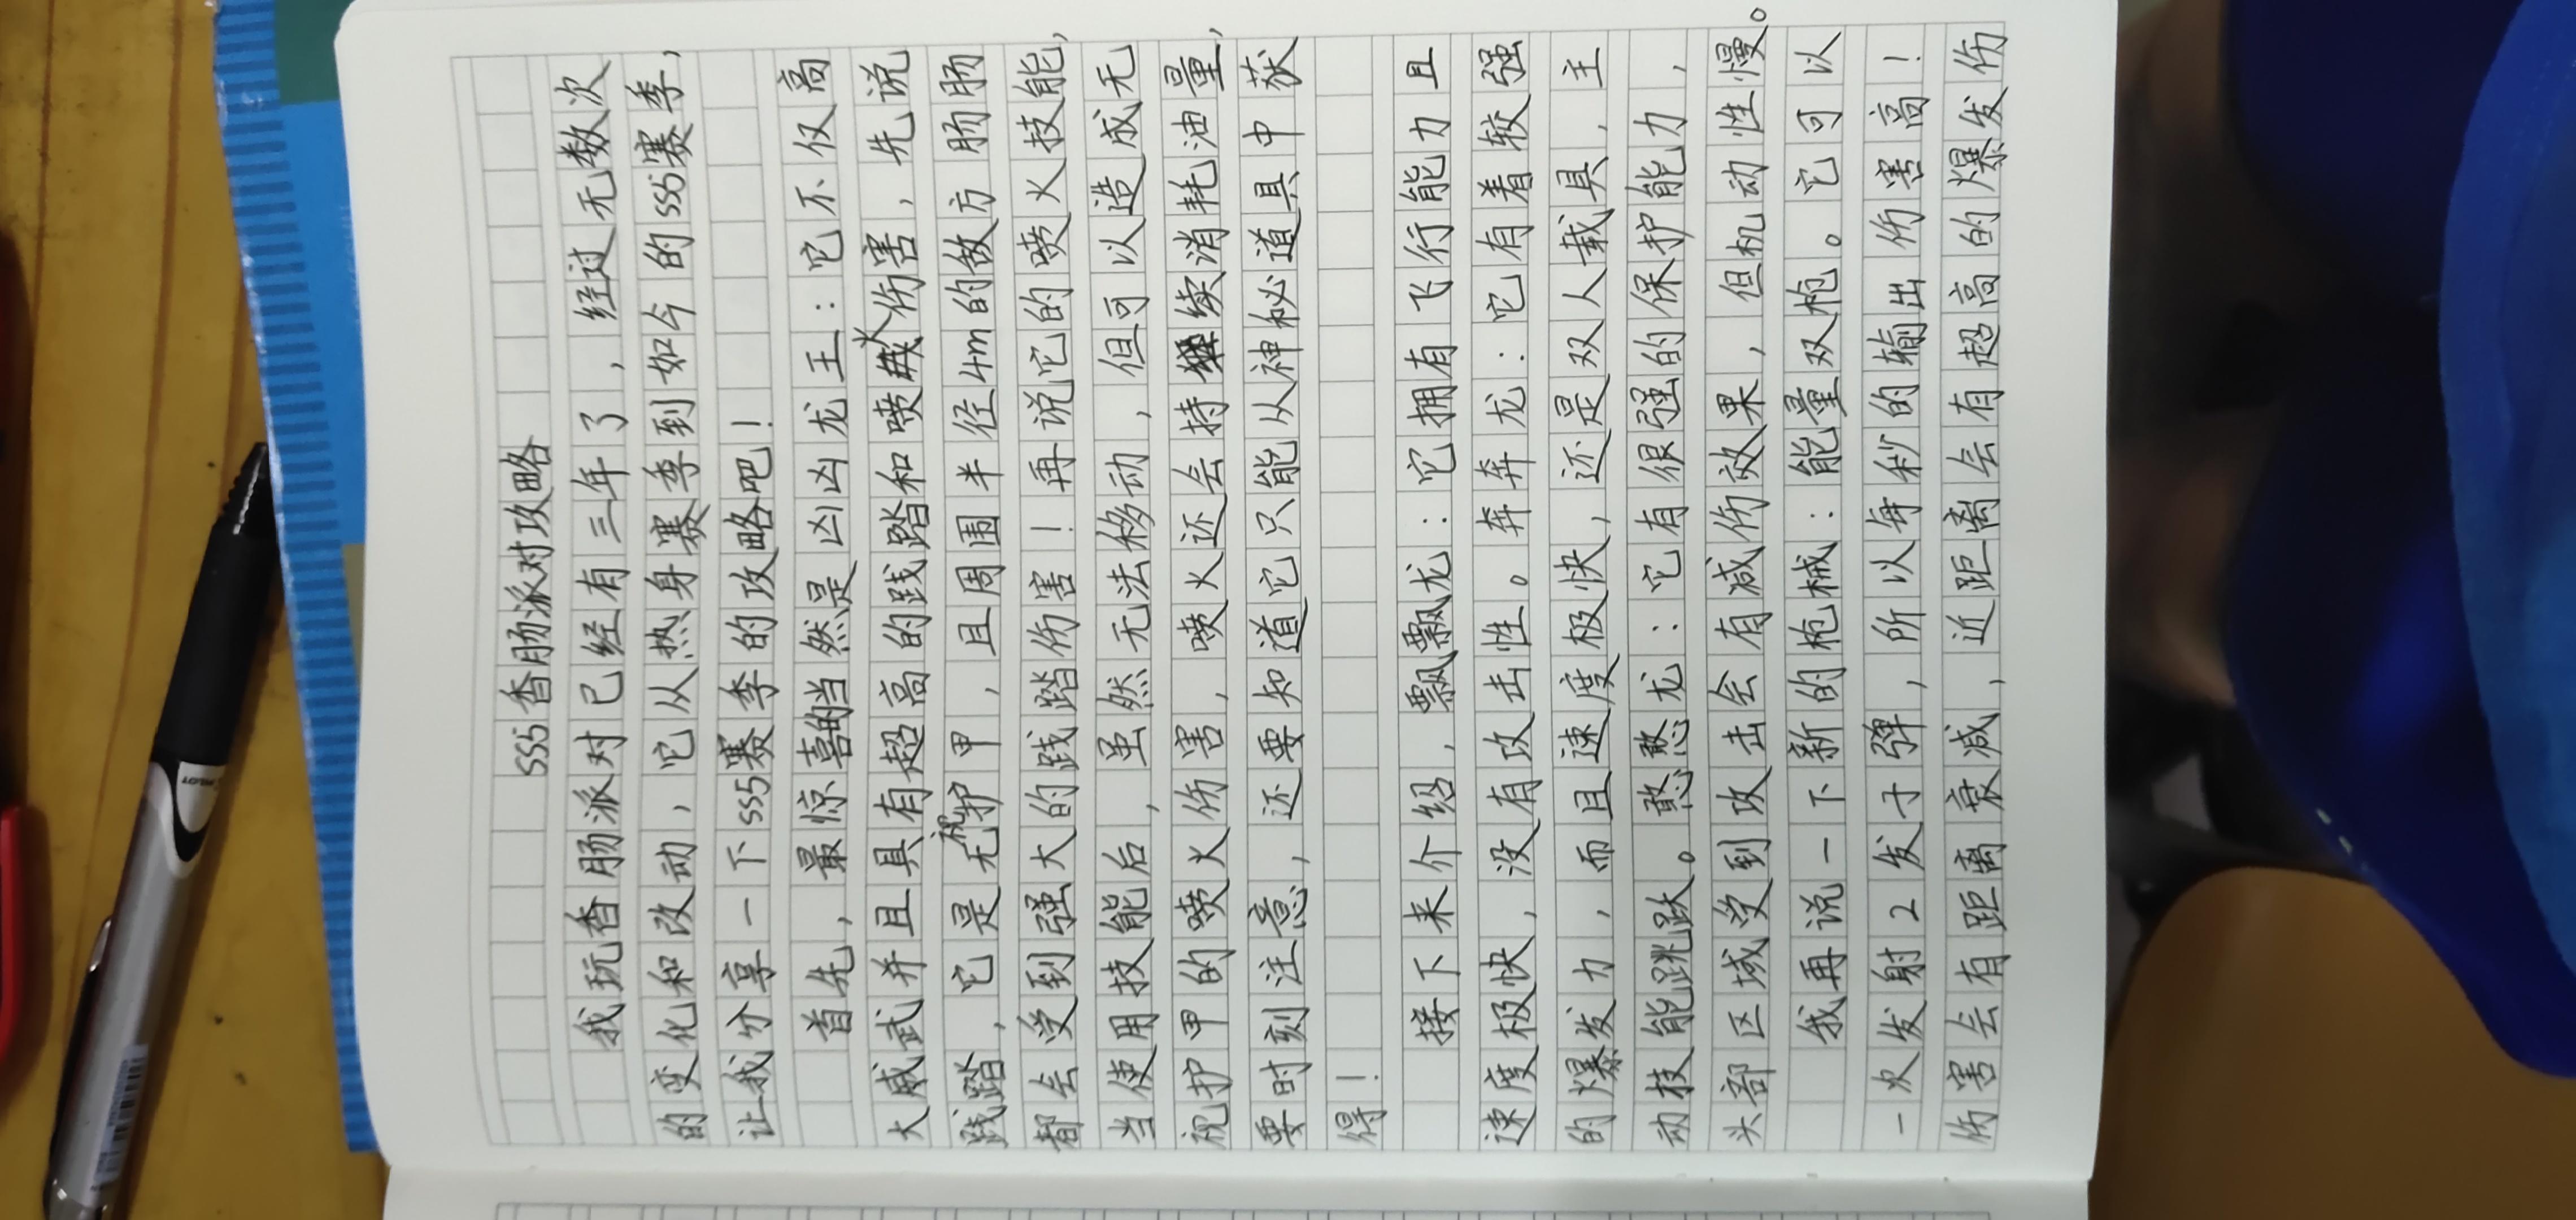 SS5香肠派对攻略
我玩香肠派对已经有三年了，经过无数次
的变化和改动，它从热身赛季到如今的SS5赛季，
让我分享一下SS5赛季的攻略吧！
首先，最惊喜的当然是凶凶龙王：它不仅高
大威武并且具有超高的践踏和喷火伤害，先说
践踏，它是无视护甲，且周围半径4m的敌方肠肠
都会受到强大的践踏伤害！再说它的喷火技能，
当使用技能后，虽然无法移动，但可以造成无
视护甲的喷火伤害，喷火还会持续消耗油量，
要时刻注意，还要知道它只能从神秘道具中获
得！
接下来介绍，飘飘龙：它拥有飞行能力且
速度极快，没有攻击性。奔奔龙：它有着较强
的爆发力，而且速度极快，还是双人载具，主
动技能跳跃。憨憨龙：它有很强的保护能力，
头部区域受到攻击会有减伤效果，但机动性慢。
我再说一下新的枪械：能量双枪。它可以
一次发射2发子弹，所以每秒的输出伤害高！
伤害会有距离衰减，近距离会有超高的爆发伤
PILOT